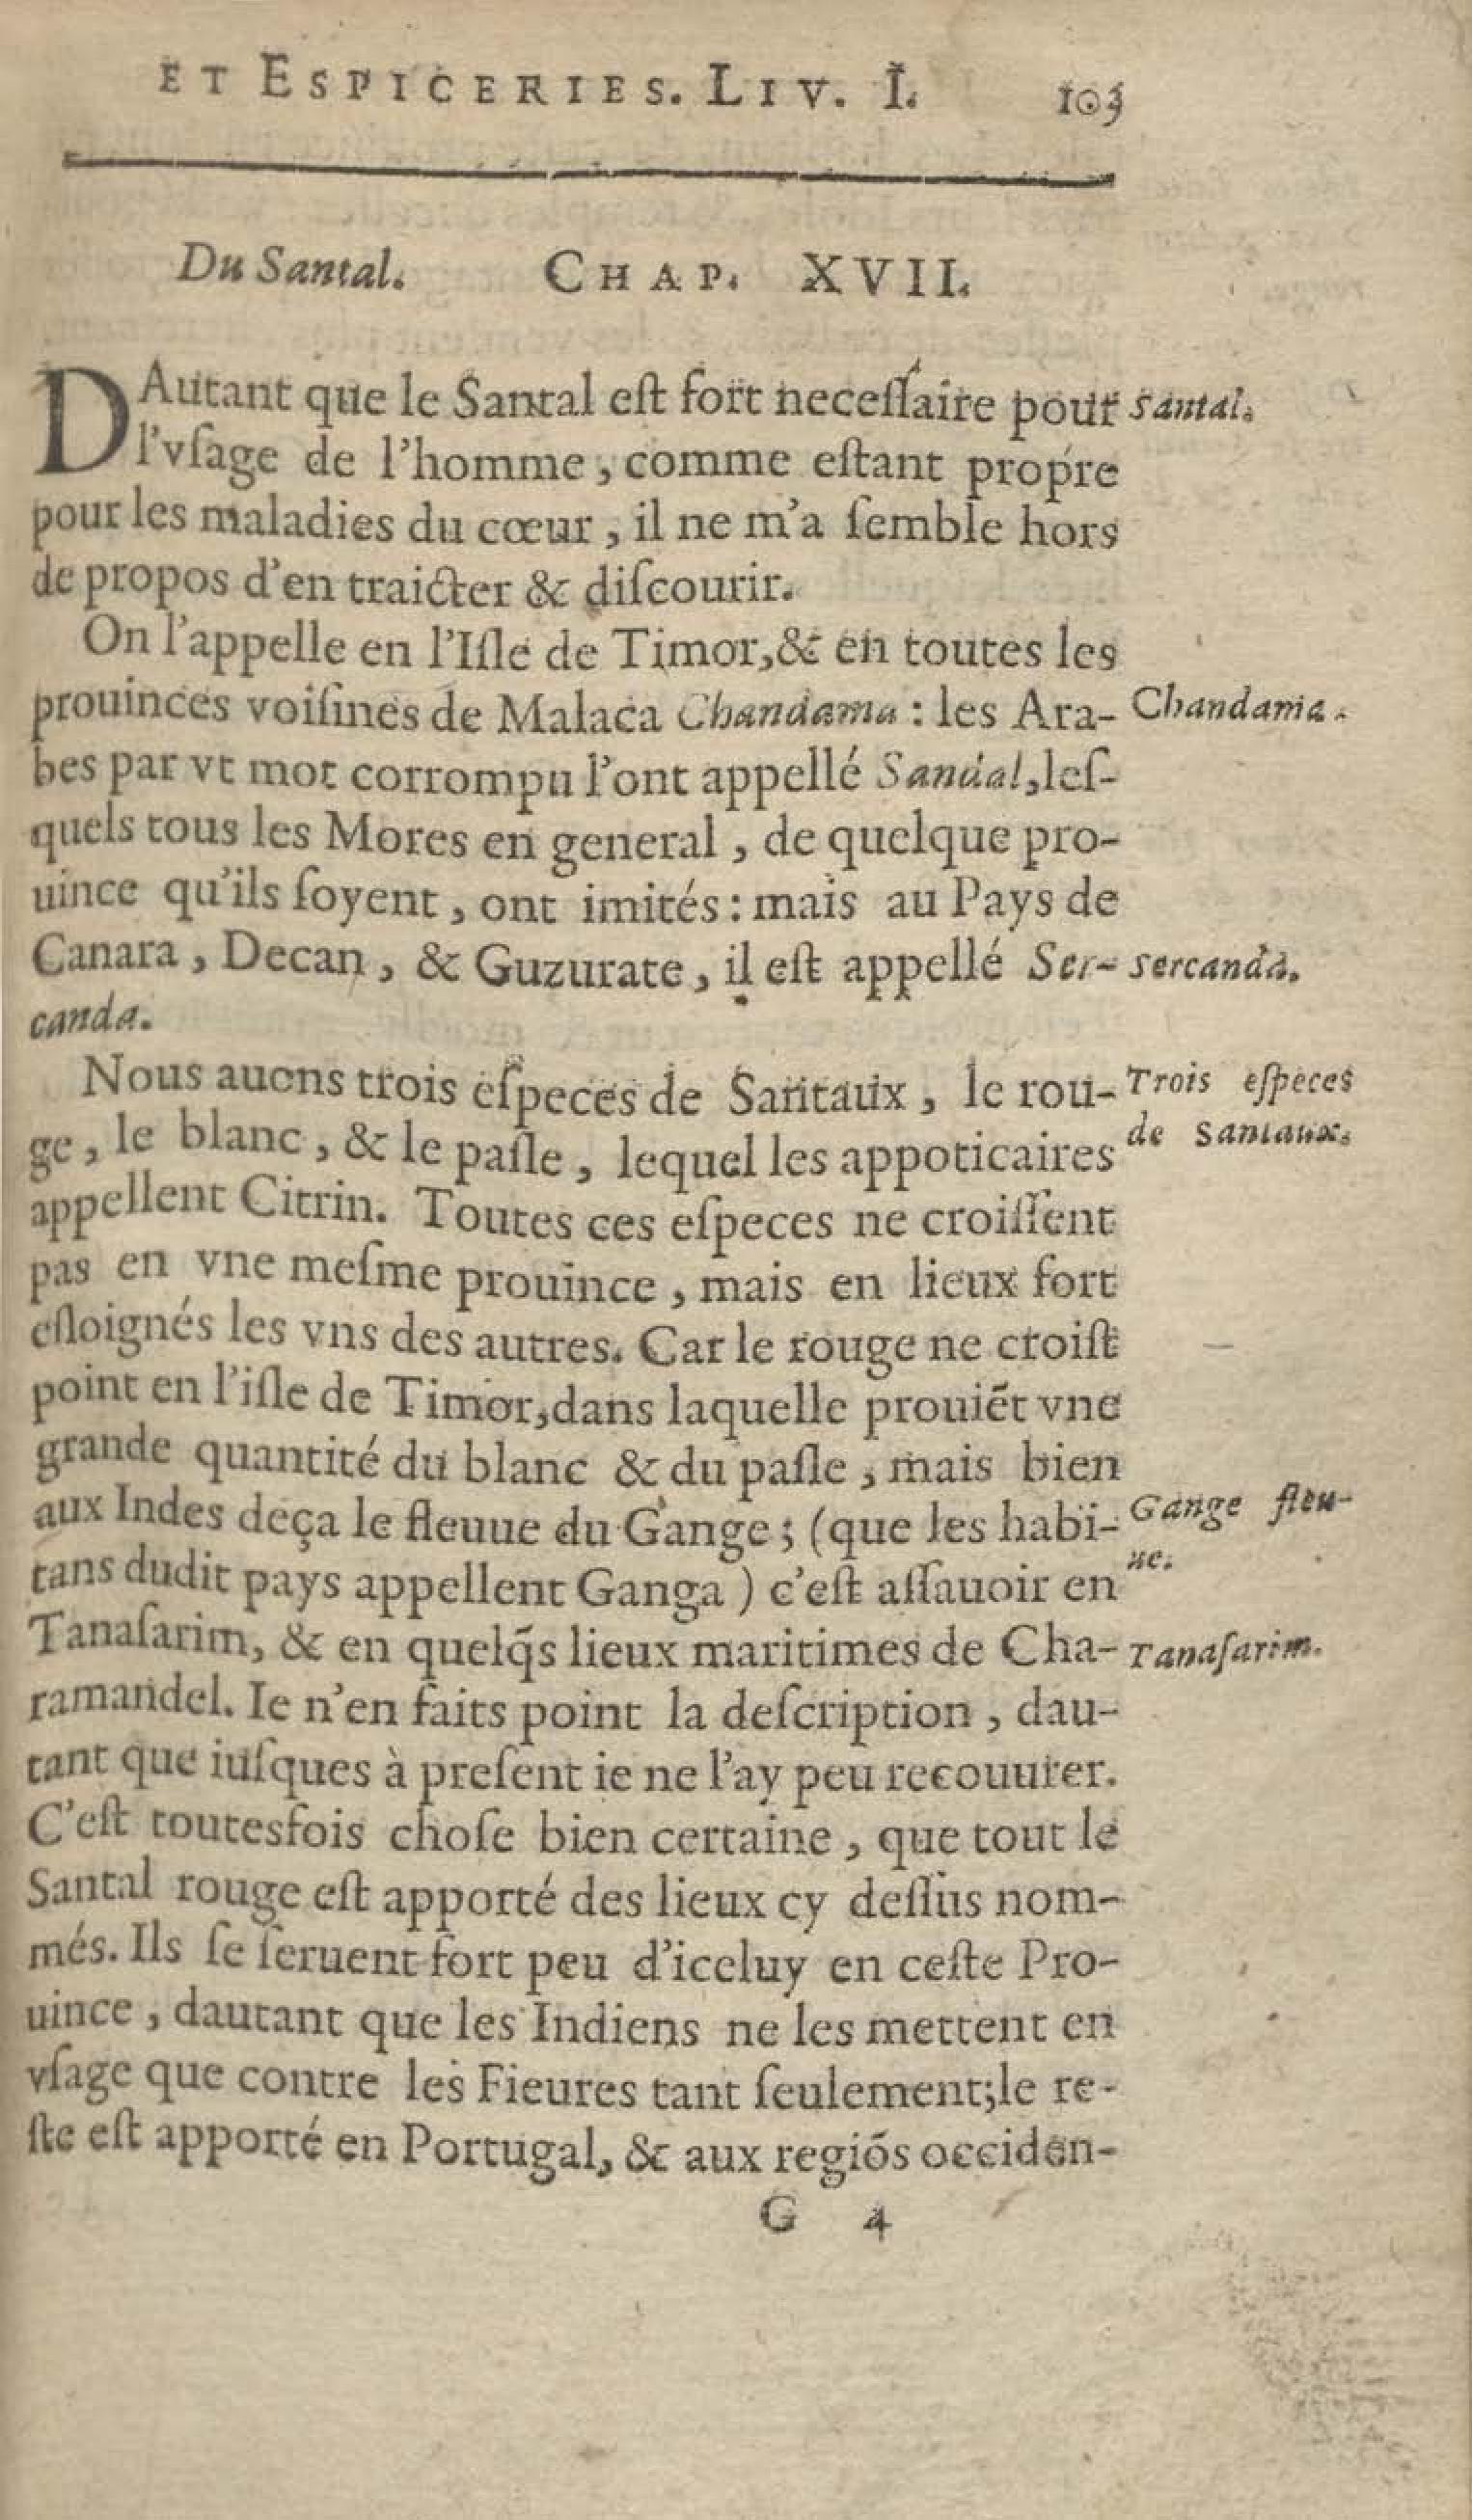 ET ESPICERIES. LIV. I. 103
Du Santal. CHAP. XVII.
DAutant que le Santal eſt fort neceſſaire pour
Santal.
l'vſage de l'homme, comme eſtant propre
pour les maladies du cœur, il ne m'a ſemble hors
de propos d'en traicter & diſcourir.
On l'appelle en l'Iſle de Timor, & en toutes les
prouinces voiſines de Malaca Chandama : les Ara-
Chandama.
bes par vt mot corrompu l'ont appellé Sandal, leſ-
quels tous les Mores en general, de quelque pro-
uince qu'ils ſoyent, ont imités : mais au Pays de
Canara, Decan, & Guzurate, il eſt appellé Ser-
sercanda.
canda.
Nous auons trois eſpeces de Santaux, le rou-
Trois eſpeces
ge, le blanc, & le paſle, lequel les appoticaires
de Santaux.
appellent Citrin. Toutes ces eſpeces ne croiſſent
pas en vne meſme prouince, mais en lieux fort
eſloignés les vns des autres. Car le rouge ne croiſt
point en l'iſle de Timor, dans laquelle prouiẽt vne
grande quantité du blanc & du paſle, mais bien
aux Indes deça le fleuue du Gange ; (que les habi-
Gange fleu-
tans dudit pays appellent Ganga) c'eſt aſſauoir en
ue.
Tanaſarim, & en quelq̃s lieux maritimes de Cha-
Tanaſarim.
ramandel. Ie n'en faits point la deſcription, dau-
tant que iuſques à preſent ie ne l'ay peu recouurer.
C'eſt toutesfois choſe bien certaine, que tout le
Santal rouge eſt apporté des lieux cy deſſus nom-
més. Ils ſe ſeruent fort peu d'iceluy en ceſte Pro-
uince, dautant que les Indiens ne les mettent en
vſage que contre les Fieures tant ſeulement; le re-
ſte eſt apporté en Portugal, & aux regiõs occiden-
G 4